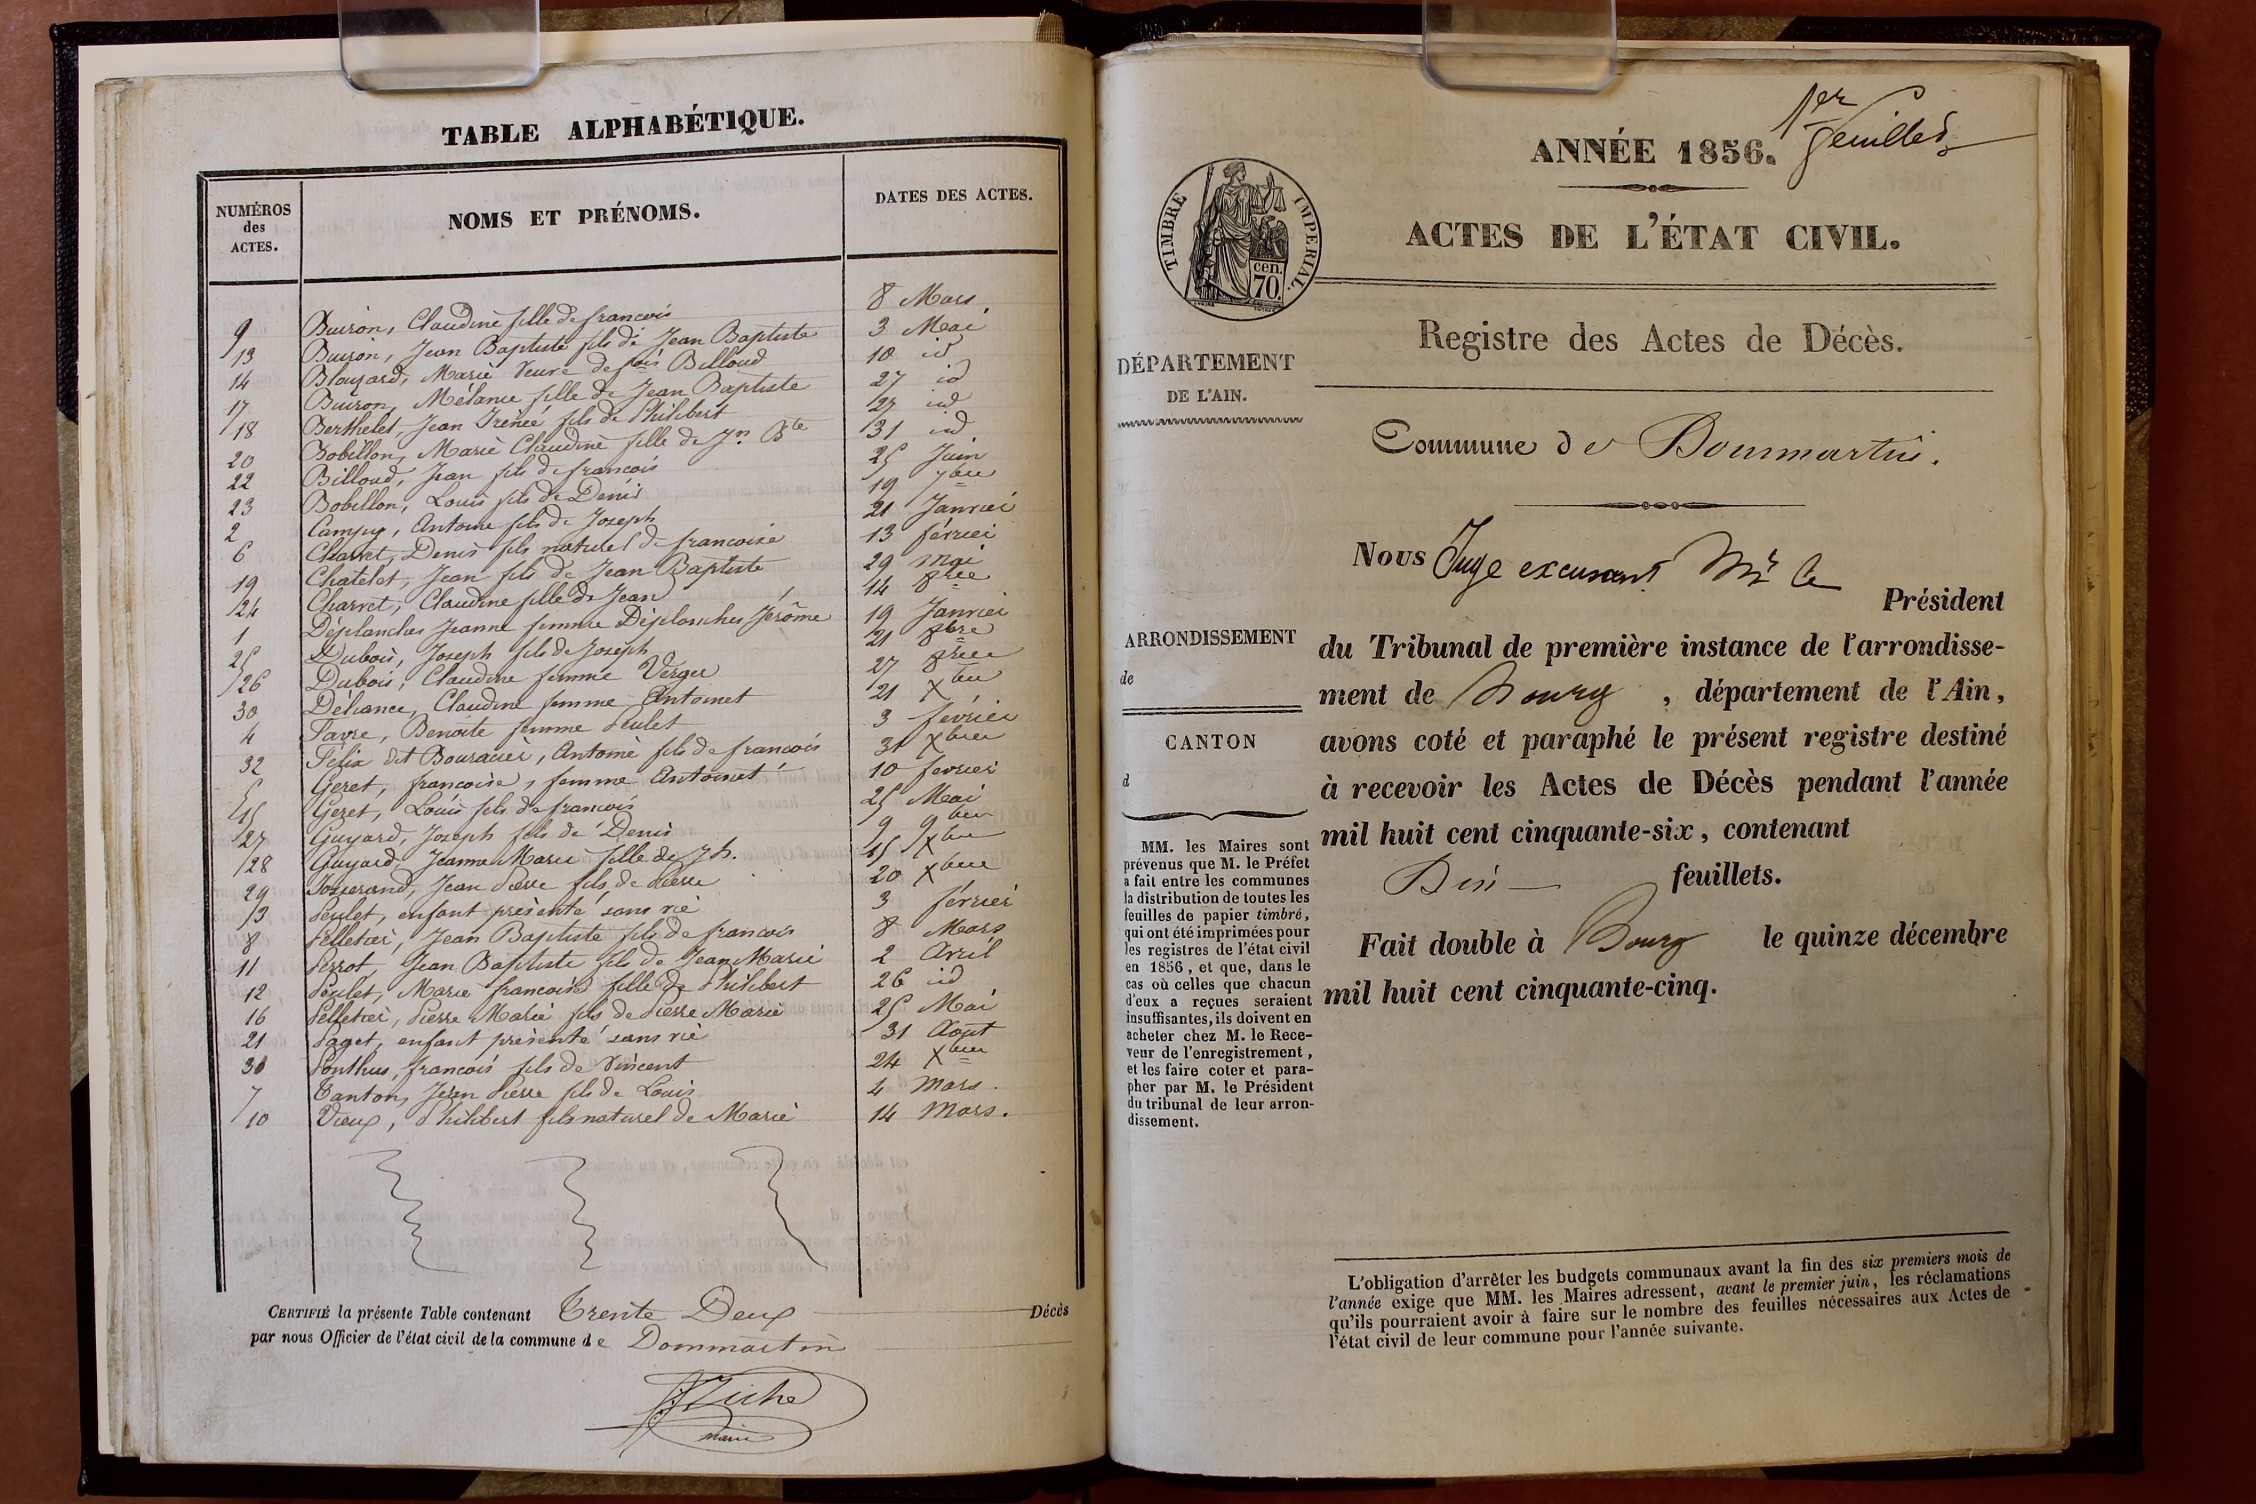 TABLE ALPHABÉTIQUE.
NUMÉROS des ACTES. NOMS ET PRÉNOMS. DATES DES ACTES.
9 Buiron, Claudine fille de francois 8 Mars
13 Buiron, Jean Baptiste fils de Jean Baptiste 3 Mai
14 Marie Veuve de Billoud 10 id
17 Buiron, Mélanie fille de Jean Baptiste 27 id
18 Berthelet, Jean Irénée fils de Philibert 27 id
20 Bobillon, Marie Claudine fille de Jn Bte 31 id
22 Billoud, Jean fils de francois 25 Juin
23 Bobillon, Louis fils de Denis 19 7bre
2 Campy, Antoine fils de Joseph 21 Janvier
6 Charvet, Denis fils naturel de francoise 13 février
19 Chatelet, Jean fils de Jean Baptiste 29 mai
24 Charvet, Claudine fille de Jean 14 8bre
1 Déplanches Jeanne femme Déplanches Jérôme 19 Janvier
25 Dubois, Joseph fils de Joseph 21 8bre
26 Dubois, Claudine femme Verger 27 8bre
30 Claudine femme Antoinet 21 Xbre
4 Favre, Benoite femme Peulet 3 février
32 Félix dit Antoine fils de francois 31 Xbre
5 Geret, francoise, femme Antoinet 10 fevrier
15 Geret, Louis fils de francois 25 Mai
27 Guyard, Joseph fils de Denis 9 9bre
28 Guyard, Jeanne Marie fille de Jh. 15 Xbre
29 Josserand, Jean Pierre fils de Pierre 20 Xbre
3 Peulet, enfant présenté sans vie 3 février
8 Pelletier, Jean Baptiste fils de francois 8 Mars
11 Perrot Jean Baptiste fils de Jean Marie 2 Avril
12 Peulet, Marie francoise fille de Philibert 26 id
16 Pelletier, Pierre Marie fils de Pierre Marie 25 Mai
21 Paget, enfant présenté sans vie 31 Août
31 Ponthus, francois fils de Vincent 24 Xbre
7 Tanton, Jean Pierre fils de Louis 4 mars.
10 Vieux, Philibert fils naturel de Marie 14 Mars.
CERTIFIÉ la présente Table contenant Trente Deux Décès
par nous Officier de l'état civil de la commune de Dommartin
maire
1er feuillet
ANNÉE 1856.
ACTES DE L'ÉTAT CIVIL.
TIMBRE IMPERIAL.
cen.
70.
Registre des Actes de Décès.
DÉPARTEMENT
DE L'AIN.
Commune de Dommartin.
Nous Juge excusant Mr le
Président
du Tribunal de première instance de l'arrondisse-
ment de Bourg, département de l'Ain,
avons coté et paraphé le présent registre destiné
à recevoir les Actes de Décès pendant l'année
mil huit cent cinquante-six, contenant
Dix feuillets.
Fait double à Bourg le quinze décembre
mil huit cent cinquante-cinq.
ARRONDISSEMENT
de
CANTON
d
MM. les Maires sont
prévenus que M. le Préfet
a fait entre les communes
la distribution de toutes les
feuilles de papier timbré,
qui ont été imprimées pour
les registres de l'état civil
en 1856, et que, dans le
cas où celles que chacun
d'eux a reçues seraient
insuffisantes, ils doivent en
acheter chez M. le Rece-
veur de l'enregistrement,
et les faire coter et para-
pher par M. le Président
du tribunal de leur arron-
dissement.
L'obligation d'arrêter les budgets communaux avant la fin des six premiers mois de
l'année exige que MM. les Maires adressent, avant le premier juin, les réclamations
qu'ils pourraient avoir à faire sur le nombre des feuilles nécessaires aux Actes de
l'état civil de leur commune pour l'année suivante.